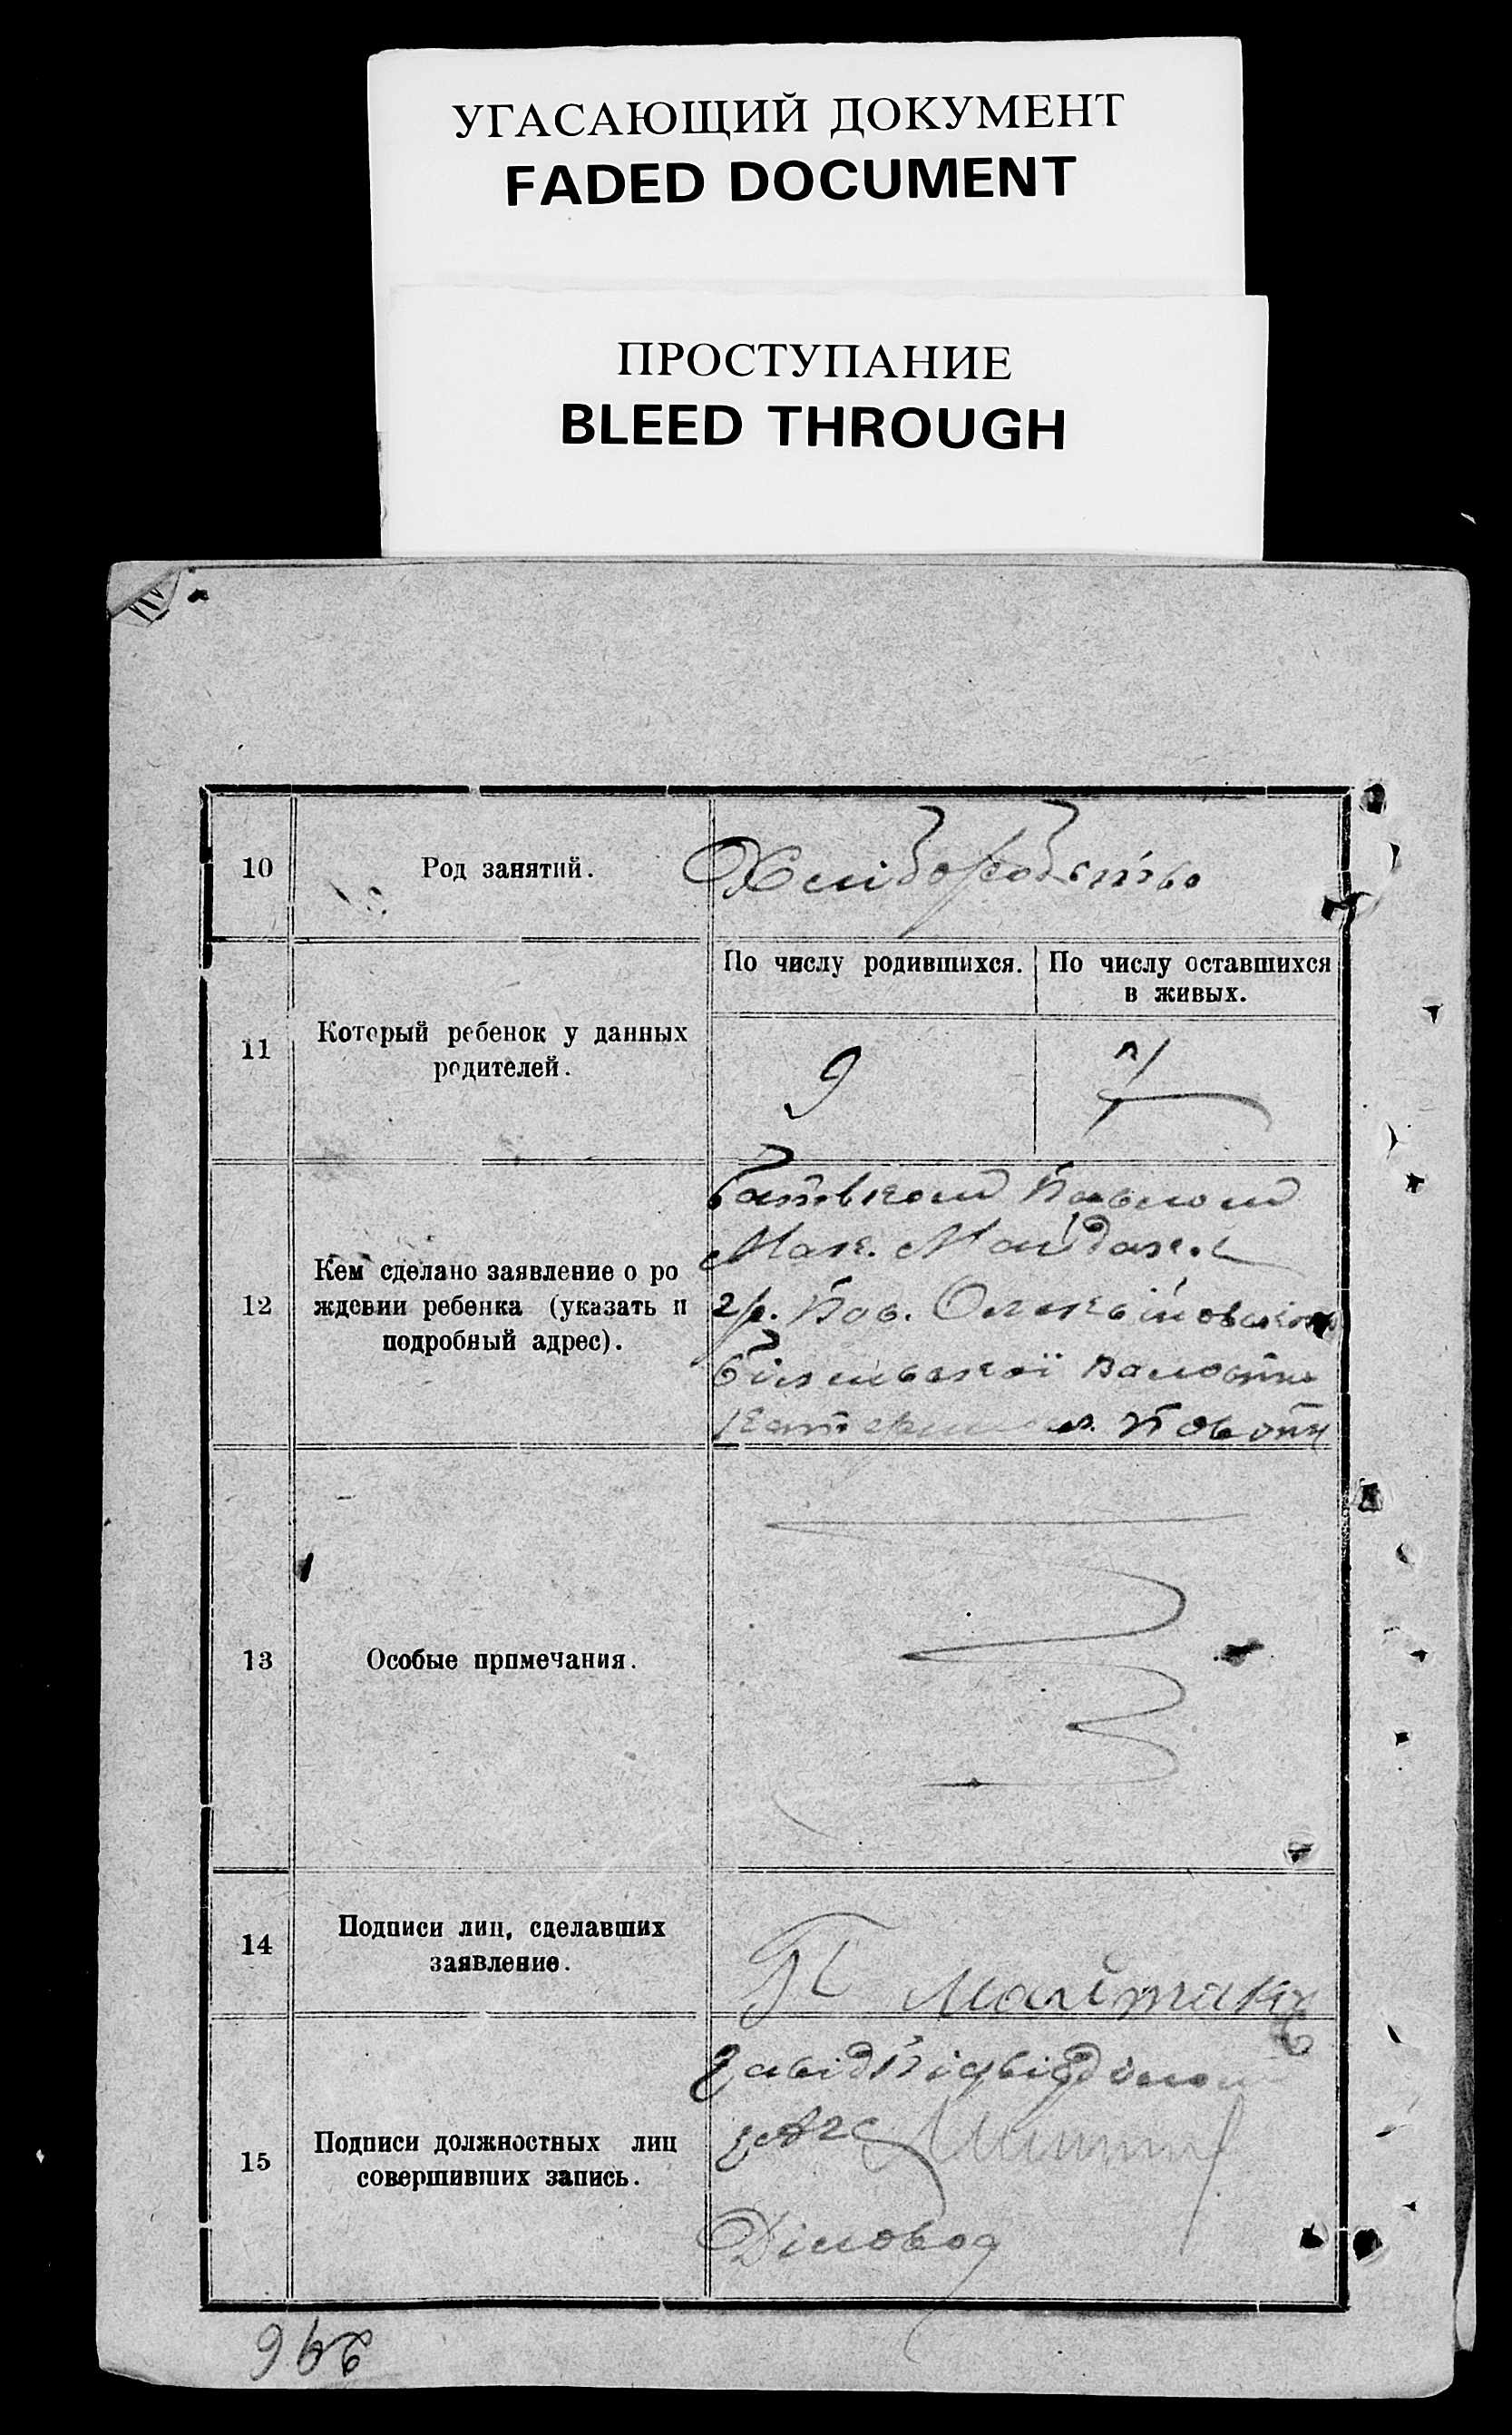 УГАСАЮЩИЙ ДОКУМЕНТ
FADED DOCUMENT
ПРОСТУПАНИЕ
BLEED THROUGH
10
Род занятий.
Хліборобство
11
Который ребенок у данных
родителей.
По числу родившихся.
По числу оставшихся
в живых.
9
7
12
Кем сделано заявление о ро
ждении ребенка (указать и
подробный адрес).
Батьком Павлом
Мак.
гр.
волости
повіту
13
Особые примечания.
14
Подписи лиц, сделавших
заявление.
П
15
Подписи должностных лиц
совершивших запись.
Завід підвідділом
ЗАГС
Діловод